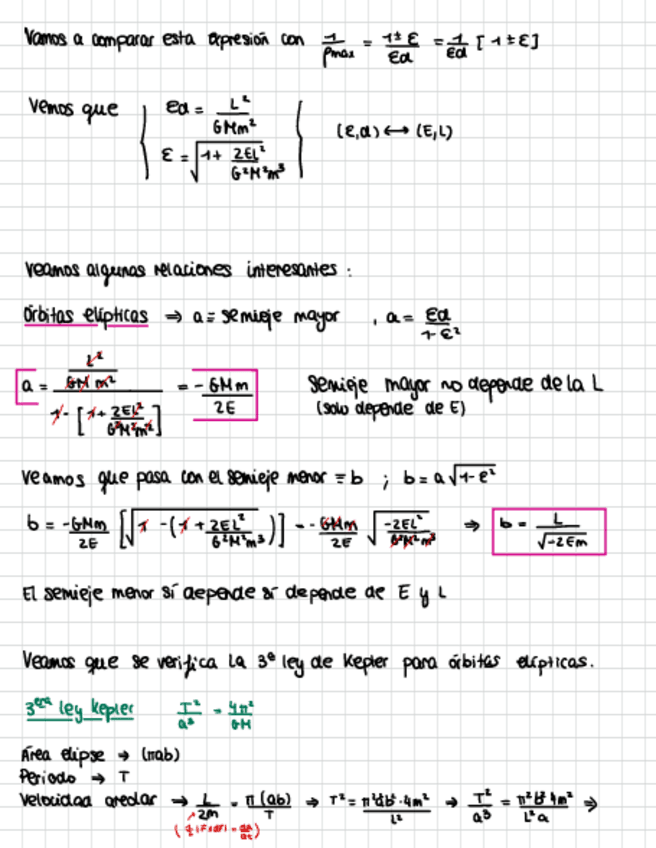 Vamos a comparar esta expresión con 1/ρmax = (1 ± ε)/εd = 1/εd [1 ± ε]
Vemos que { εd = L²/(GMm²)
ε = √(1 + 2EL²/(G²M²m³)) } (ε,d) ↔ (E,L)
Veamos algunas relaciones interesantes:
Órbitas elípticas ⇒ a ≡ semieje mayor , a = εd/(1-ε²)
a = (L²/(GM m²))/(1 - [1 + 2EL²/(G²M²m³)]) = -GMm/2E semieje mayor no depende de la L
(solo depende de E)
Veamos que pasa con el semieje menor ≡ b ; b = a √(1-ε²)
b = -GMm/2E [√(1 - (1 + 2EL²/(G²M²m³)))] = -GMm/2E √(-2EL²/(G²M²m³)) ⇒ b = L/√(-2Em)
El semieje menor sí depende sí depende de E y L
Veamos que se verifica la 3ª ley de Kepler para órbitas elípticas.
3era ley Kepler T²/a³ = 4π²/GM
Área elipse → (πab)
Periodo → T
Velocidad areolar → L/2m = π(ab)/T ⇒ T² = π²a²b²·4m²/L² → T²/a³ = π²b²4m²/L²a ⇒